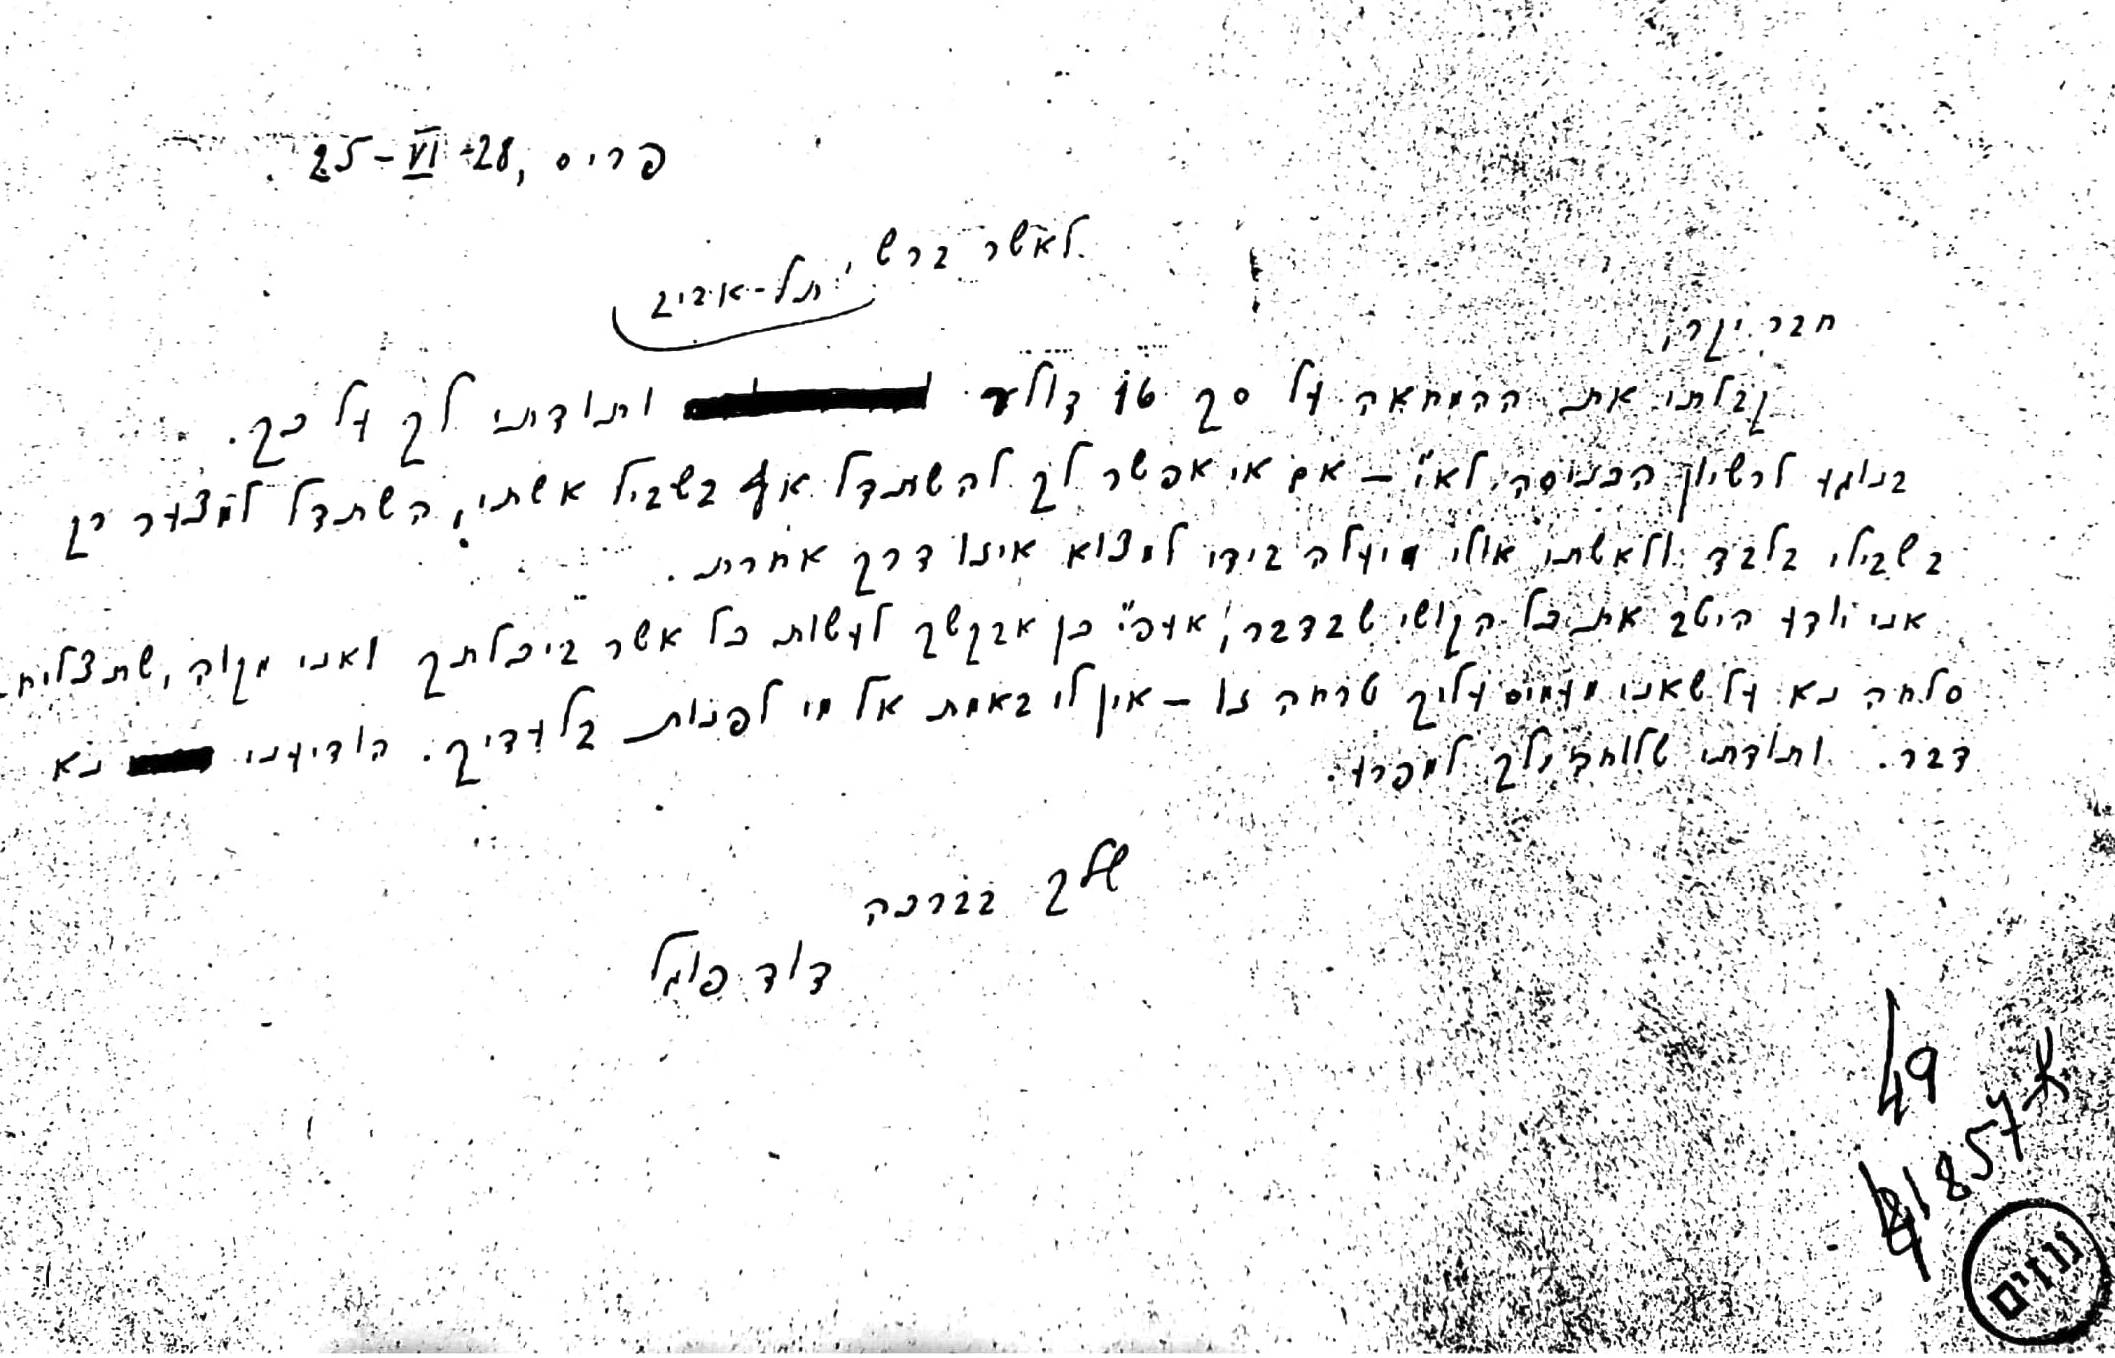 פריס, 25-VI-28.
לאשר ברש, תל-אביב
חבר יקר,
קבלתי את ההמחאה על סך 10 דולר ותודתי לך על כך.
בנוגע לרשיון הכניסה לא"י – אם אי אפשר לך להשתדל אף בשביל אשתי, השתדל למצער רק
בשבילי בלבד ולאשתי אולי יעלה בידי למצוא איזו דרך אחרת.
אני יודע היטב את כל הקושי שבדבר, אעפ"י כן אבקשך לעשות כל אשר ביכלתך ואני מקוה, שתצליח.
סלחה נא על שאני מעמיס עליך טרחה זו – אין לי באמת אל מי לפנות בלעדיך. הודיעני נא
דבר. ותודתי שלוחה לך למפרע.
שלך בברכה
דוד פוגל
49
81857 א
גנזים